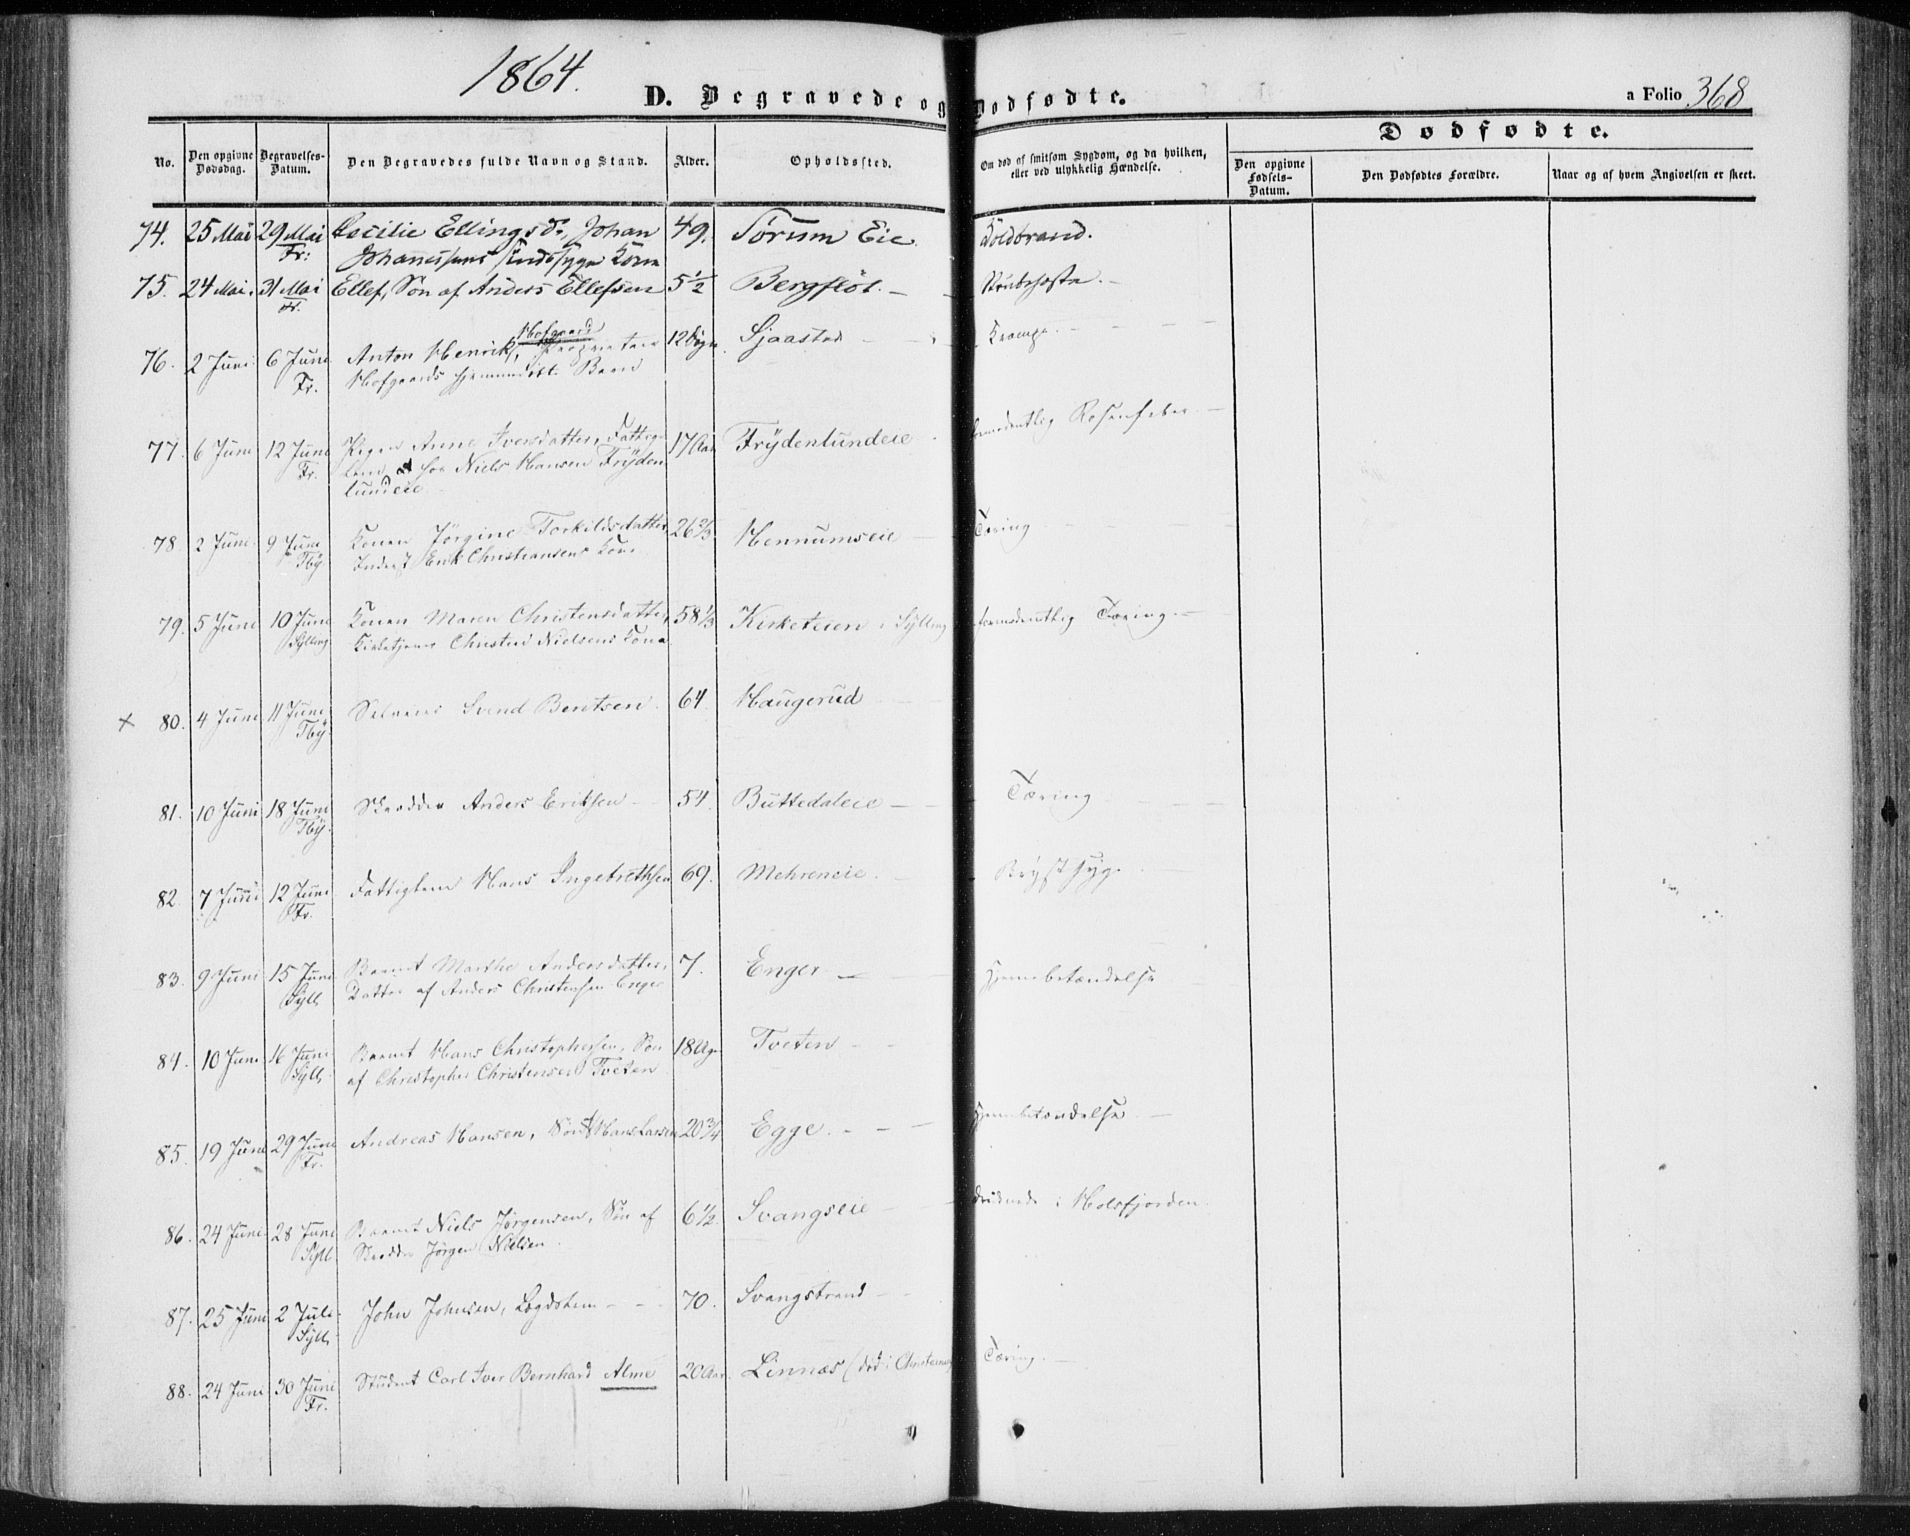 1864.
D. Begravede og Dødfødte.
a Folio 368
No.
Den opgivne Dødsdag.
Begravelses-Datum.
Den Begravedes fulde Navn og Stand.
Alder.
Opholdssted.
Om død af smitsom Sygdom, og da hvilken, eller ved ulykkelig Hændelse.
Dødfødte.
Den opgivne Fødsels-Datum.
Den Dødfødtes Forældre.
Naar og af hvem Angivelsen er skeet.
74. 25 Mai 29 Mai Cecilie Ellingsdr, Johan 49. Sørum Eie Koldbrand.
Fr: Johannesens sindssyge Kone
75. 24 Mai. 31 Mai Ellef, Søn af Anders Ellefsen 5½ Bergfløt. Strubehoste.
Fr.
Hofgaard
76. 2 Juni 6 Juni Anton Henrik, Proprietair 12 Dage Sjaastad Krampe
Fr. Hofgaards hjemmedøbt Barn
77. 6 Juni 12 Juni Pigen Anne Iversdatter, Fattig- 17 Aar Frydenlundeie formodentlig Rosenfeber
Fr. lem hos Niels Hansen Fryden
lundeie
78. 2 Juni 9 Juni Konen Jørgine Torkildsdatter, 26⅔ Hennumseie Tæring
Tby Inderst Erik Christiansens Kone
79. 5 Juni 10 Juni Konen Maren Christensdatter, 58⅓ Kirketeien i Sylling formodentlig Tæring.
Sylling Kirketjener Christen Nielsens Kone
+ 80. 4 Juni 11 Juni Svend Berntsen 64. Haugerud
Tby
81. 10 Juni 18 Juni Skrædder Anders Eriksen 54. Buttedaleie Tæring
Tby
82. 7 Juni 12 Juni Fattiglem Hans Ingebrethsen 69. Mehreneie. Brystsyge
Fr.
83. 9 Juni 15 Juni Barnet Marthe Andersdatter, 7. Enger Hjernebetændelse
Syll. Datter af Anders Christensen Enger
84. 10 Juni 16 Juni Barnet Hans Christophersen, Søn 18 Uger Tveten
Syll. af Christopher Christensen Tveten
85. 19 Juni 29 Juni Andreas Hansen, Søn af Hans Larsen 20¾ Egge. Hjernebetændelse
Fr.
86. 24 Juni 28 Juni Barnet Niels Jørgensen, Søn af 6½ Svangseie druknede i Holsfjorden.
Syll Skrædder Jørgen Nielsen
87. 25 Juni 2 Juli John Johnsen, Lægdslem 70. Svangstrand
Syll.
88. 24 Juni 30 Juni Student Carl Iver Bernhard Alme 20 Aar. Linnæs (død i Christiania) Tæring.
Fr.